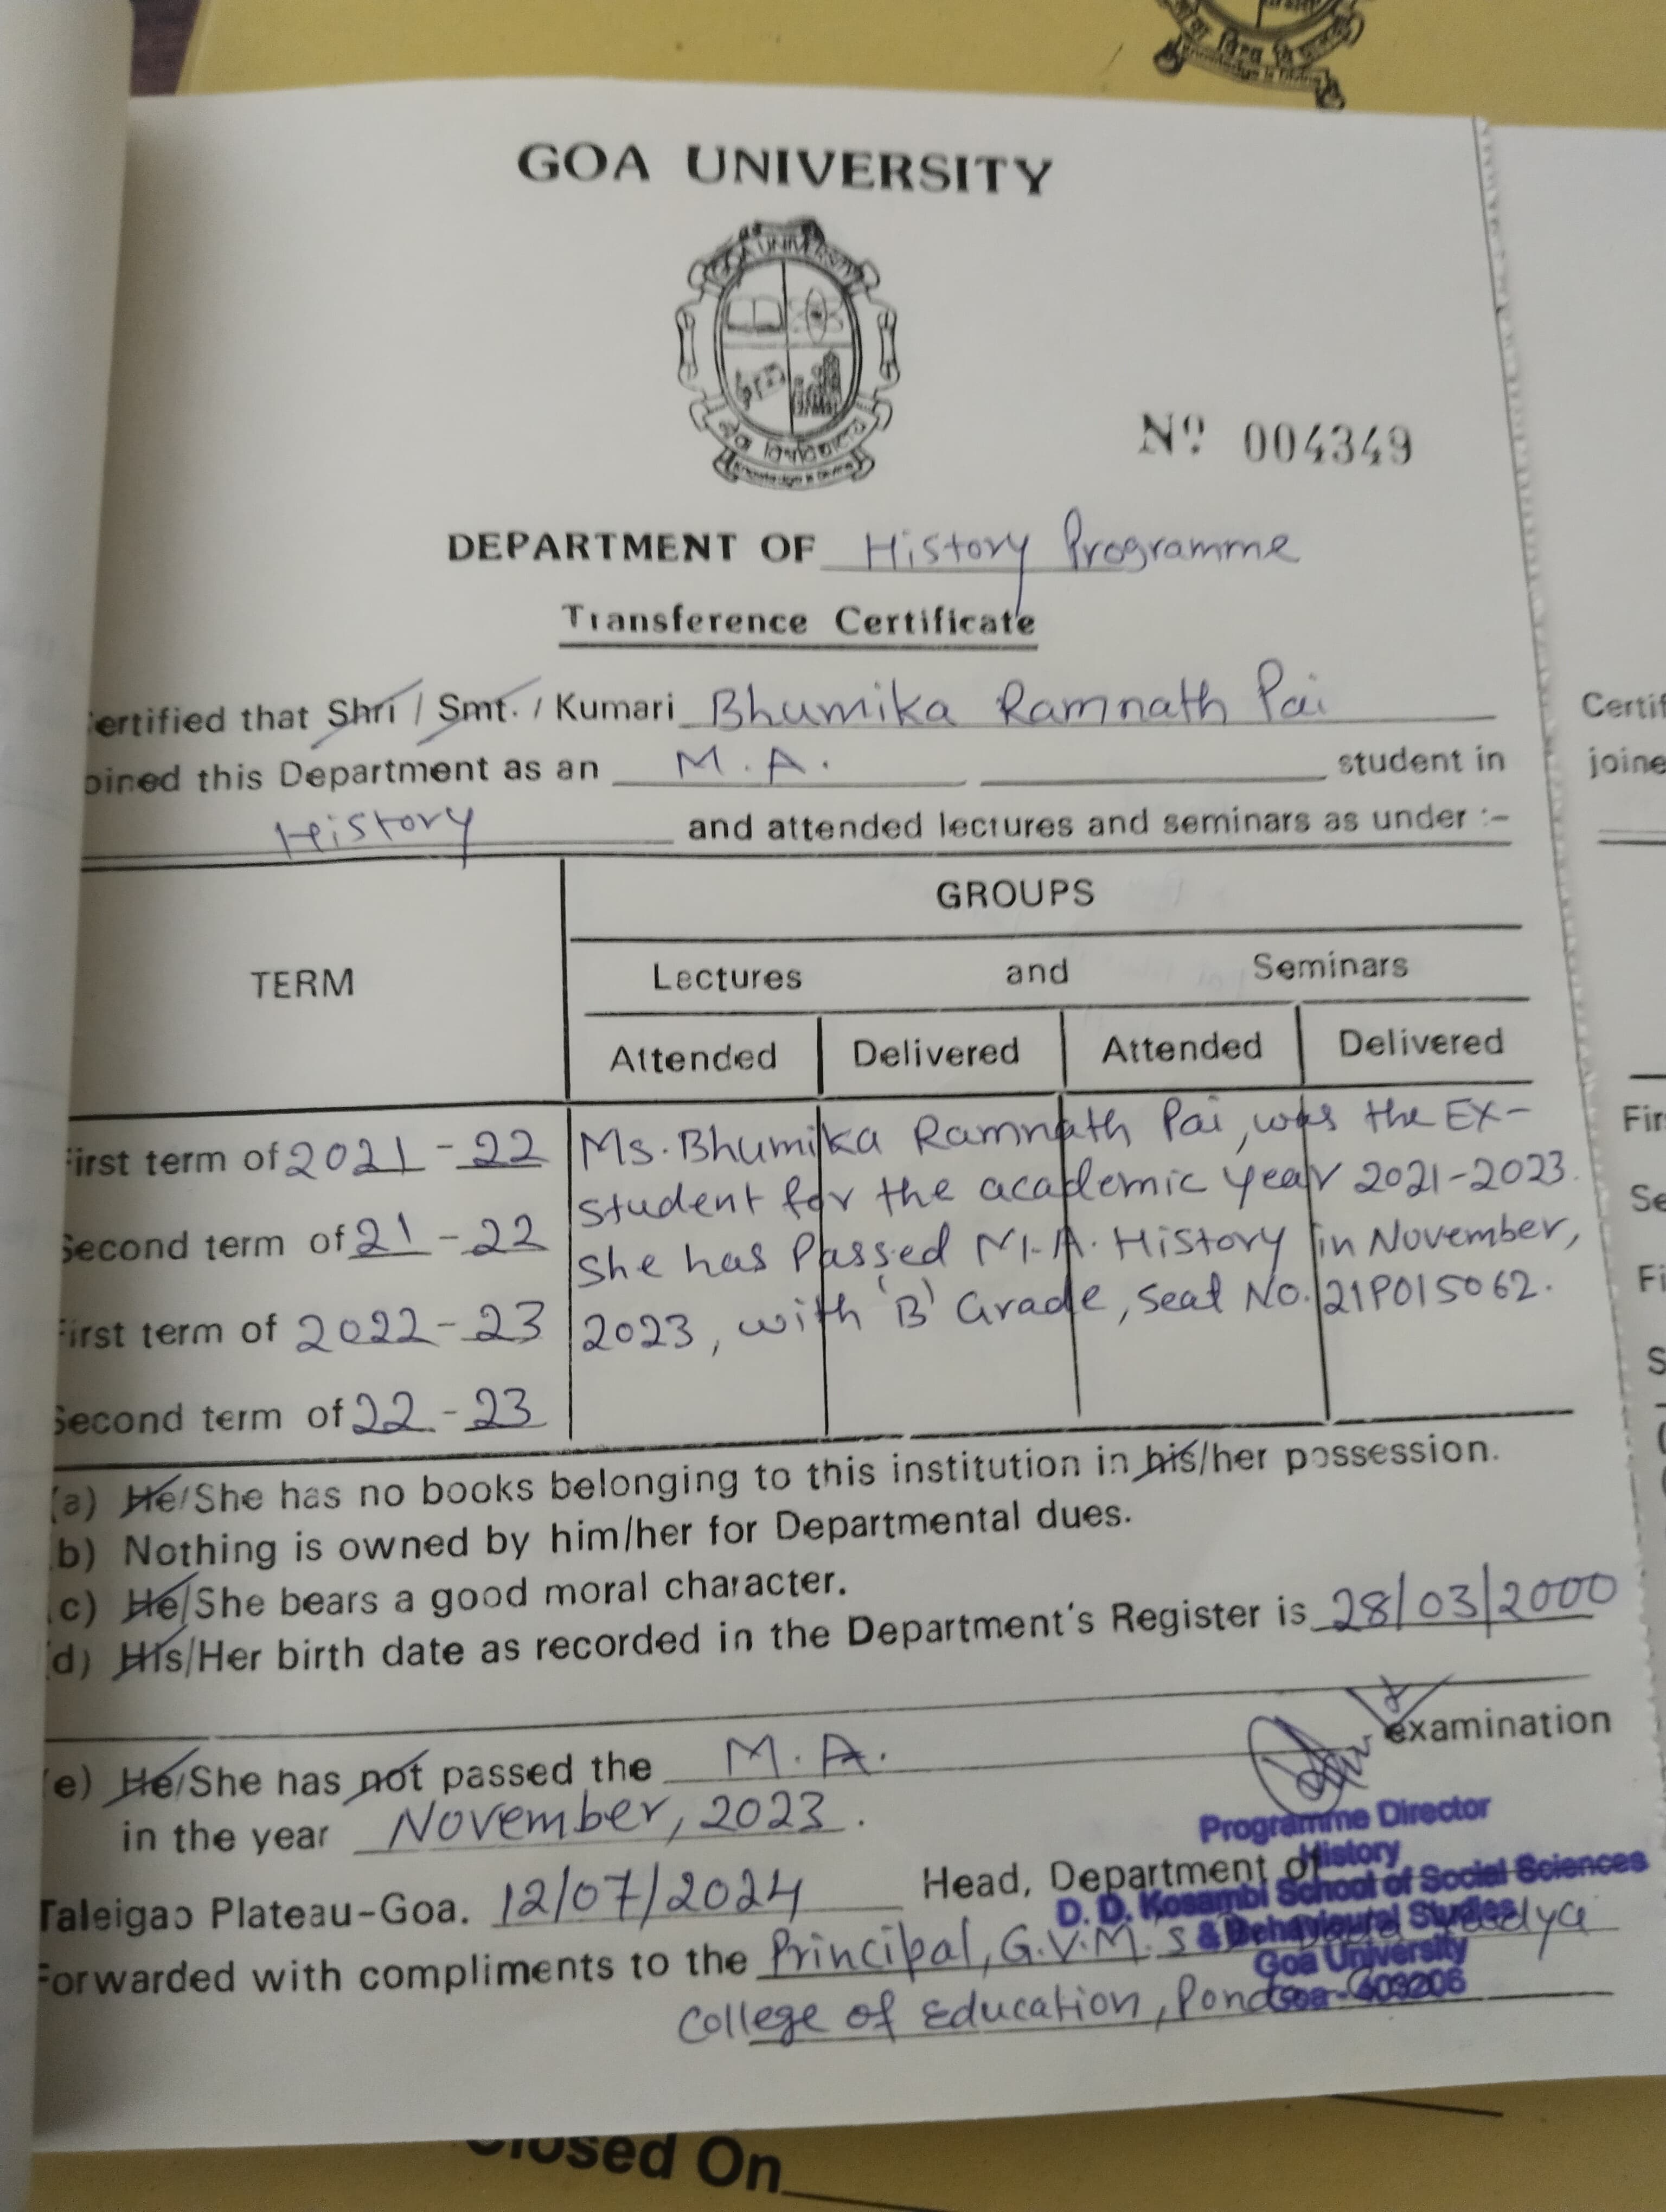 GOA UNIVERSITY
GOA UNIVERSITY
Knowledge is Divine
Nº 004349
DEPARTMENT OF History Programme
Transference Certificate
ertified that Shri / Smt. / Kumari Bhumika Ramnath Pai
oined this Department as an M.A. student in
History and attended lectures and seminars as under :-
GROUPS
TERM
Lectures and Seminars
Attended Delivered Attended Delivered
First term of 2021-22
Second term of 21-22
First term of 2022-23
Second term of 22-23
Ms. Bhumika Ramnath Pai, was the Ex-
student for the academic year 2021-2023.
She has Passed M.A. History in November,
2023, with 'B' Grade, Seat No. 21P015062.
(a) He/She has no books belonging to this institution in his/her possession.
b) Nothing is owned by him/her for Departmental dues.
(c) He/She bears a good moral character.
(d) His/Her birth date as recorded in the Department's Register is 28/03/2000
(e) He/She has not passed the M.A. examination
in the year November, 2023.
Programme Director
History
D. D. Kosambi School of Social Sciences
& Behavioural Studies
Goa University
Goa - 403206
Taleigao Plateau-Goa. 12/07/2024 Head, Department of
Forwarded with compliments to the Principal, G.V.M.'s
College of Education, Ponda
Certif
joine
Fir
Se
Fi
S
Closed On